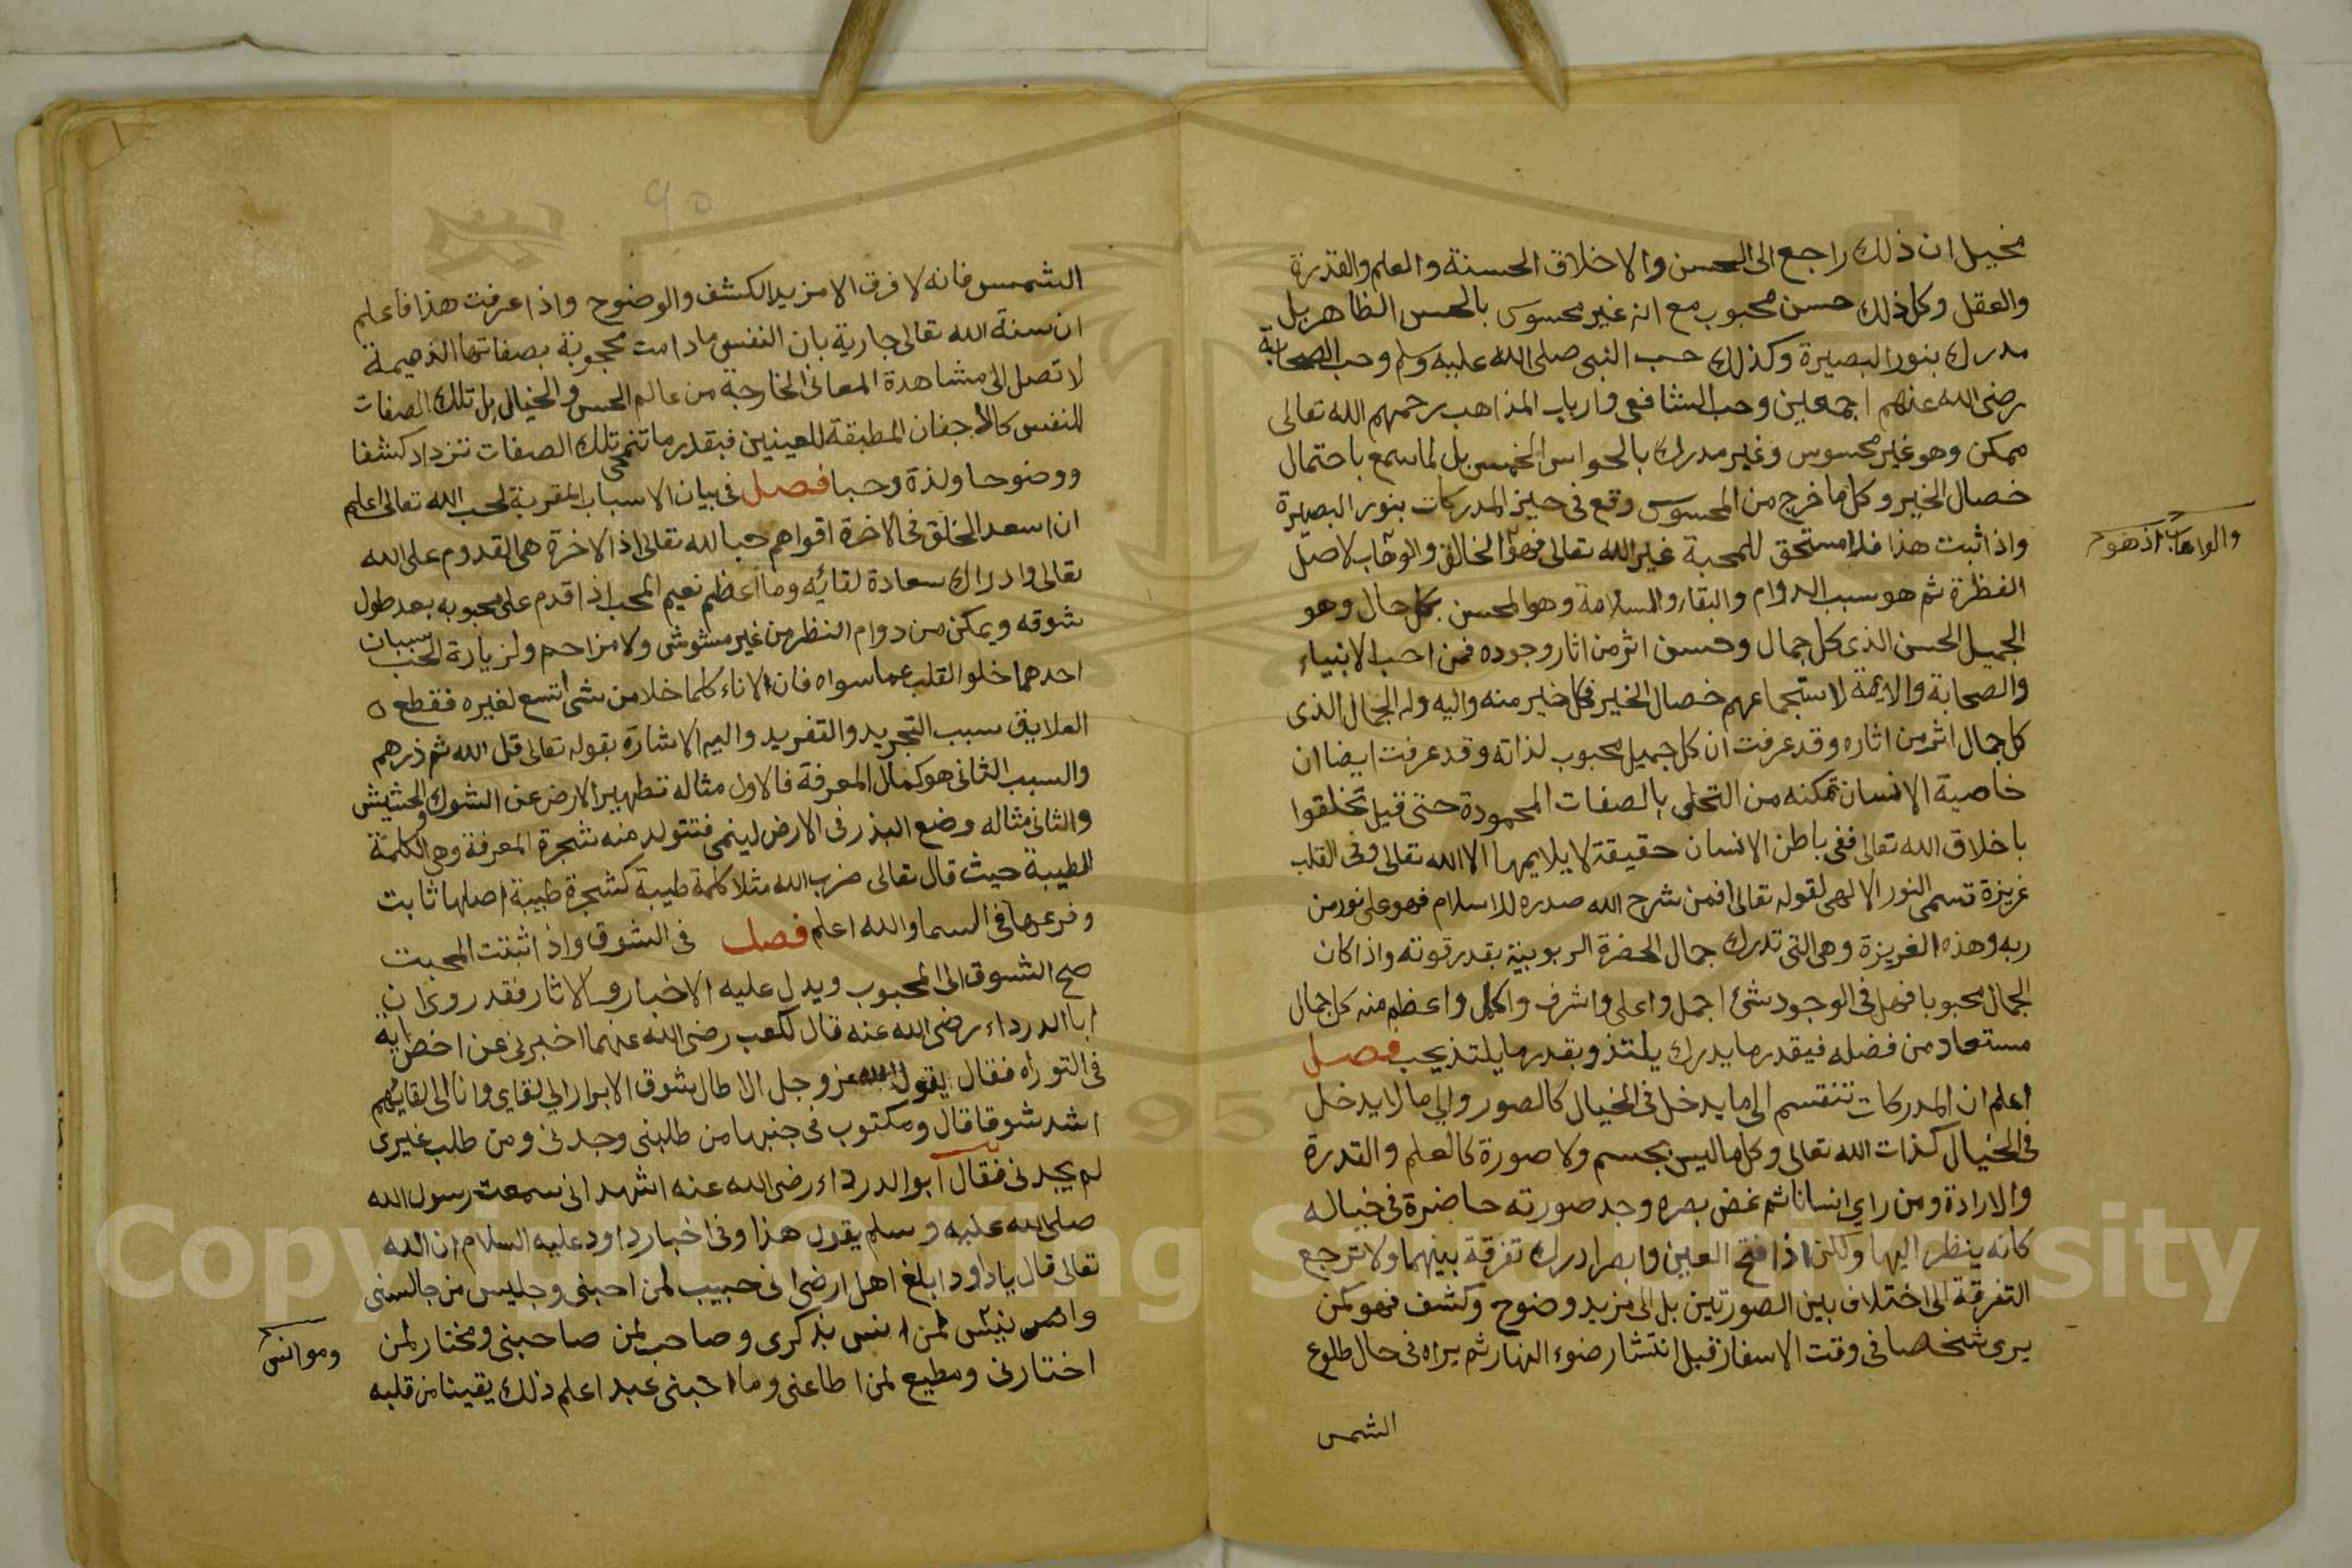 مخيل ان ذلك راجع الى الحسن والاخلاق الحسنة والعلم والقدرة
والعقل وكل ذلك حسن محبوب مع انه غير محسوس بالحس الظاهر بل
مدرك بنور البصيرة وكذلك حب النبى صلى الله عليه وسلم وحب الصحابة
رضى الله عنهم اجمعين وحب الشافعى وارباب المذاهب رحمهم الله تعالى
ممكن وهو غير محسوس وغير مدرك بالحواس الخمس بل لما سمع باحتمال
خصال الخير وكل ما خرج من المحسوس وقع فى حيز المدركات بنور البصيرة
واذا ثبت هذا فلا مستحق للمحبة غير الله تعالى فهو الخالق والوهاب لاصل
والواهاب اذ هو
الفطرة ثم هو سبب الدوام والبقاء والسلامة وهو المحسن بكل حال وهو
الجميل الحسن الذى كل جمال وحسن اثر من اثار وجوده فمن احب الانبياء
والصحابة والايمة لاستجماعهم خصال الخير فكل خير منه واليه وله الجمال الذى
كل جمال اثر من اثاره وقد عرفت ان كل جميل محبوب لذاته وقد عرفت ايضا ان
خاصية الانسان تمكنه من التحلى بالصفات المحمودة حتى قيل تخلقوا
باخلاق الله تعالى ففى باطن الانسان حقيقة لا يلايمها الا الله تعالى وفى القلب
غريزة تسمى النور الالهى لقوله تعالى افمن شرح الله صدره للاسلام فهو على نور من
ربه وهذه الغريزة وهى التى تدرك جمال الحضرة الربوبية بقدر قوته واذا كان
الجمال محبوبا فهل فى الوجود شئ اجمل واعلى واشرف واكمل واعظم منه كل جمال
مستعاد من فضله فبقدر ما يدرك يلتذ وبقدر ما يلتذ يحب فصل
اعلم ان المدركات تنقسم الى ما يدخل فى الخيال كالصور والي ما لا يدخل
فى الخيال كذات الله تعالى وكل ما ليس بجسم ولا صورة كالعلم والقدرة
والارادة ومن راي انسانا ثم غض بصره وجد صورته حاضرة فى خياله
كانه ينظر اليها ولكن اذا فتح العين وابصر ادرك تفرقة بينهما ولا ترجع
التفرقة الى اختلاف بين الصورتين بل الى مزيد وضوح وكشف فهو كمن
يرى شخصا فى وقت الاسفار قبل انتشار ضوء النهار ثم يراه فى حال طلوع
الشمس
الشمس فانه لا فرق الا مزيد الكشف والوضوح واذا عرفت هذا فاعلم
ان سنة الله تعالى جارية بان النفس ما دامت محجوبة بصفاتها الذميمة
لا تصل الى مشاهدة المعانى الخارجة من عالم الحس والخيال بل تلك الصفات
للنفس كالاجفان المطبقة للعينين فبقدر ما تنمحى تلك الصفات تزداد كشفا
ووضوحا ولذة وحبا فصل فى بيان الاسباب المقربة لحب الله تعالى اعلم
ان اسعد الخلق فى الاخرة اقواهم حبا لله تعالى اذ الاخرة هى القدوم على الله
تعالى وادراك سعادة لقائه وما اعظم نعيم المحب اذا قدم على محبوبه بعد طول
شوقه ويمكن من دوام النظر من غير مشوش ولا مزاحم ولزيارة الحب سببان
احدهما خلو القلب عما سواه فان الاناء كلما خلا من شى اتسع لغيره فقطع
العلايق سبب التجريد والتفريد واليه الاشارة بقوله تعالى قل الله ثم ذرهم
والسبب الثانى هو كمال المعرفة فالاول مثاله تطهير الارض عن الشوك والحشيش
والثانى مثاله وضع البذر فى الارض لينمى فتتولد منه شجرة المعرفة وهى الكلمة
الطيبة حيث قال تعالى ضرب الله مثلا كلمة طيبة كشجرة طيبة اصلها ثابت
وفرعها فى السما والله اعلم فصل فى الشوق واذا اثبتت المحبت
صح الشوق الى المحبوب ويدل عليه الاخبار والاثار فقد روى ان
ابا الدرداء رضى الله عنه قال لكعب رضى الله عنهما اخبرنى عن اخص اية
فى التوراه فقال يقول الله عز وجل الا طال شوق الابرار الي لقاي وانا الى لقايهم
اشد شوقا قال ومكتوب فى جنبها من طلبنى وجدنى ومن طلب غيرى
لم يجدنى فقال ابو الدرداء رضى الله عنه اشهد انى سمعت رسول الله
صلى الله عليه وسلم يقول هذا وفى اخبار داود عليه السلام ان الله
تعالى قال يا داود ابلغ اهل ارضى انى حبيب لمن احبنى وجليس من جالسنى
لمن انس بذكرى وصاحب لمن صاحبنى ومختار لمن
وموانس
اختارنى ومطيع لمن اطاعنى وما احبنى عبد اعلم ذلك يقينا من قلبه
Copyright © King Saud University